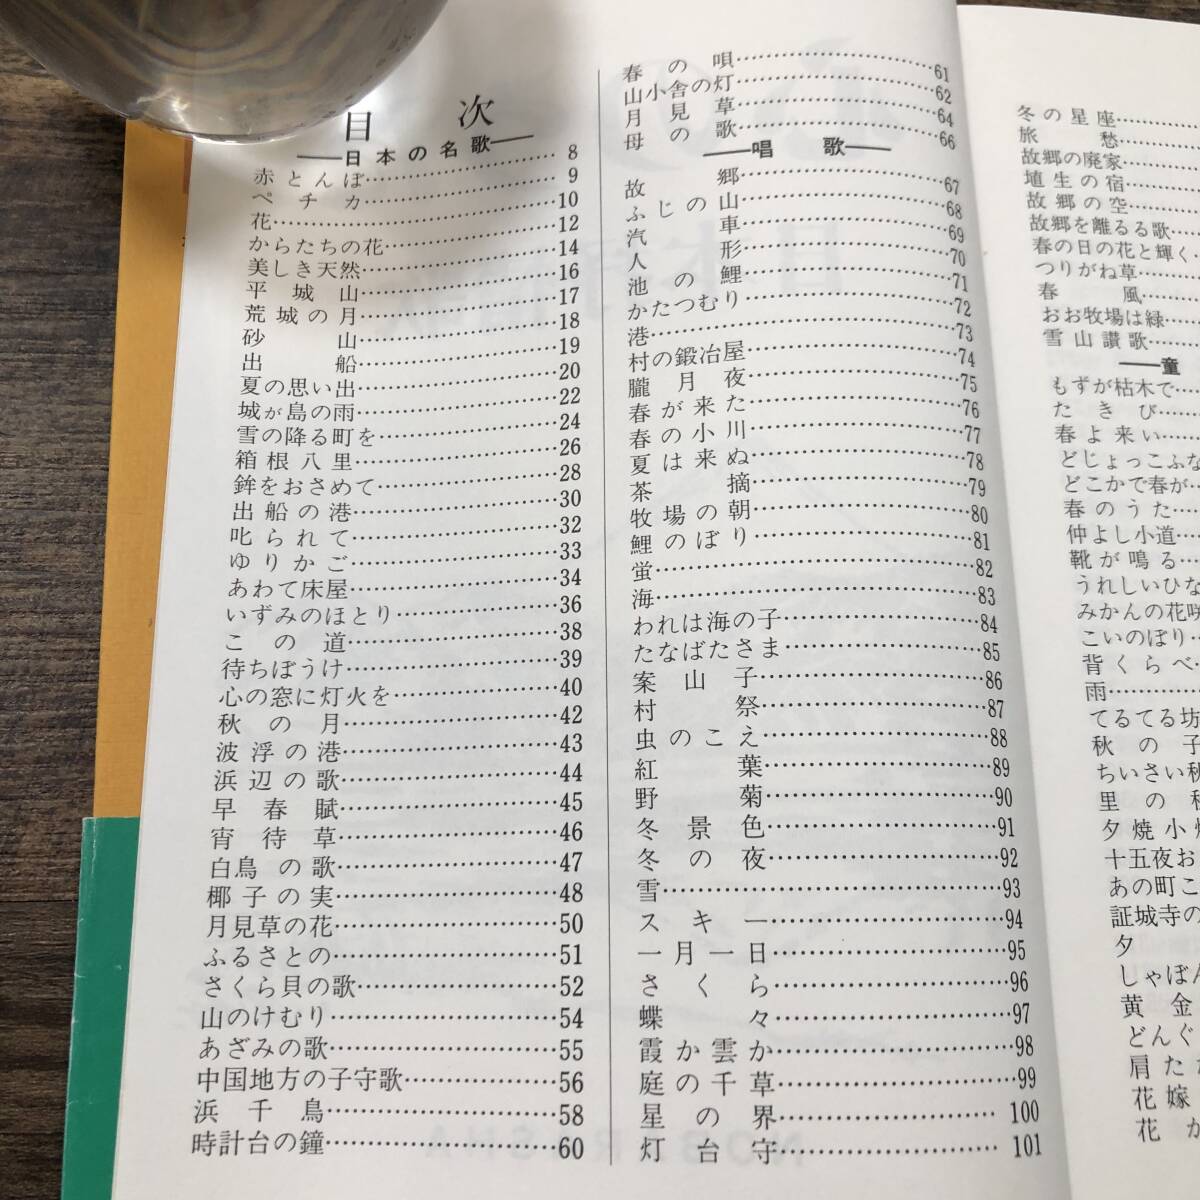 目次
日本の名歌
赤とんぼ 8
ペチカ 9
花 10
からたちの花 12
美しき天然 14
平城山 16
荒城の月 17
砂山 18
出船 19
夏の思い出 20
城が島の雨 22
雪の降る町を 24
箱根八里 26
鉾をおさめて 28
出船の港 30
叱られて 32
ゆりかご 33
あわて床屋 34
いずみのほとり 36
この道 38
待ちぼうけ 39
心の窓に灯火を 40
秋の月 42
波浮の港 43
浜辺の歌 44
早春賦 45
宵待草 46
白鳥の歌 47
椰子の実 48
月見草の花 50
ふるさとの 51
さくら貝の歌 52
山のけむり 54
あざみの歌 55
中国地方の子守歌 56
浜千鳥 58
時計台の鐘 60
春の唄 61
山小舎の灯 62
月見草 64
母の歌 66
唱歌
故郷 67
ふじの山 68
汽車 69
人形 70
池の鯉 71
かたつむり 72
港 73
村の鍛冶屋 74
朧月夜 75
春が来た 76
春の小川 77
夏は来ぬ 78
茶摘 79
牧場の朝 80
鯉のぼり 81
蛍 82
海 83
われは海の子 84
たなばたさま 85
案山子 86
村祭 87
虫のこえ 88
紅葉 89
野菊 90
冬景色 91
冬の夜 92
雪 93
スキー 94
一月一日 95
さくら 96
蝶々 97
霞か雲か 98
庭の千草 99
星の界 100
灯台守 101
冬の星座
旅愁
故郷の廃家
埴生の宿
故郷の空
故郷を離るる歌
春の日の花と輝く
つりがね草
春風
おお牧場は緑
雪山讃歌
童
もずが枯木で
たきび
春よ来い
どじょっこふな
どこかで春が
春のうた
仲よし小道
靴が鳴る
うれしいひな
みかんの花咲
こいのぼり
背くらべ
雨
てるてる坊
秋の子
ちいさい秋
里の秋
夕焼小焼
十五夜お
あの町こ
証城寺の
夕
しゃぼん
黄金
どんぐ
肩たた
花嫁
花か